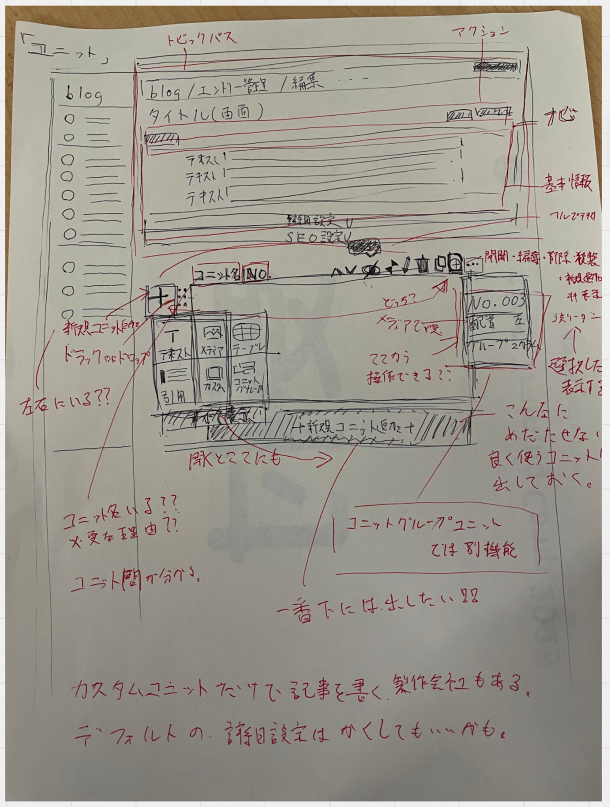 「ユニット」
トピックパス
アクション
blog
blog/エントリー管理/編集 ...
タイトル(画面)
ナビ
テキスト
テキスト
テキスト
基本情報
詳細設定 ∨
SEO設定 ∨
ユニット名 NO.
開閉・編集・削除・複製
+
新規ユニット追加
ドラックandドロップ
左右にいる??
どっち?
メディアで
ここから
操作できる??
NO.003
配置 左
グループ
選択した
表示する
テキスト
メディア
テーブル
引用
カスタム
ユニットグループ
+新規ユニット追加+
開くとここにも
こんなに
めだたせない
良く使うユニット
出しておく。
ユニット名いる??
必要な理由??
ユニット間が分かる。
ユニットグループユニット
では別機能
一番下には出したい!!
カスタムユニットだけで記事を書く製作会社もある。
デフォルトの詳細設定はかくしてもいいかも。